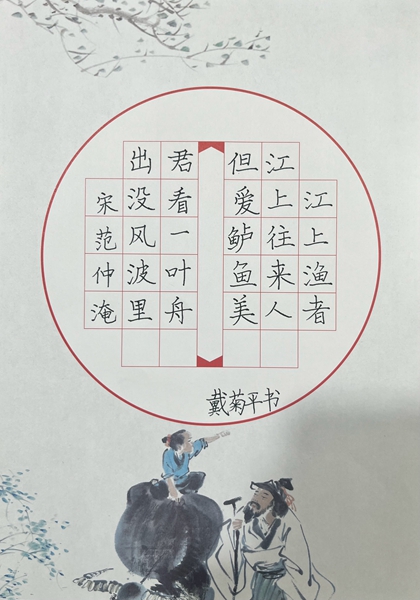 江上渔者
江上往来人
但爱鲈鱼美
君看一叶舟
出没风波里
宋范仲淹
戴菊平书